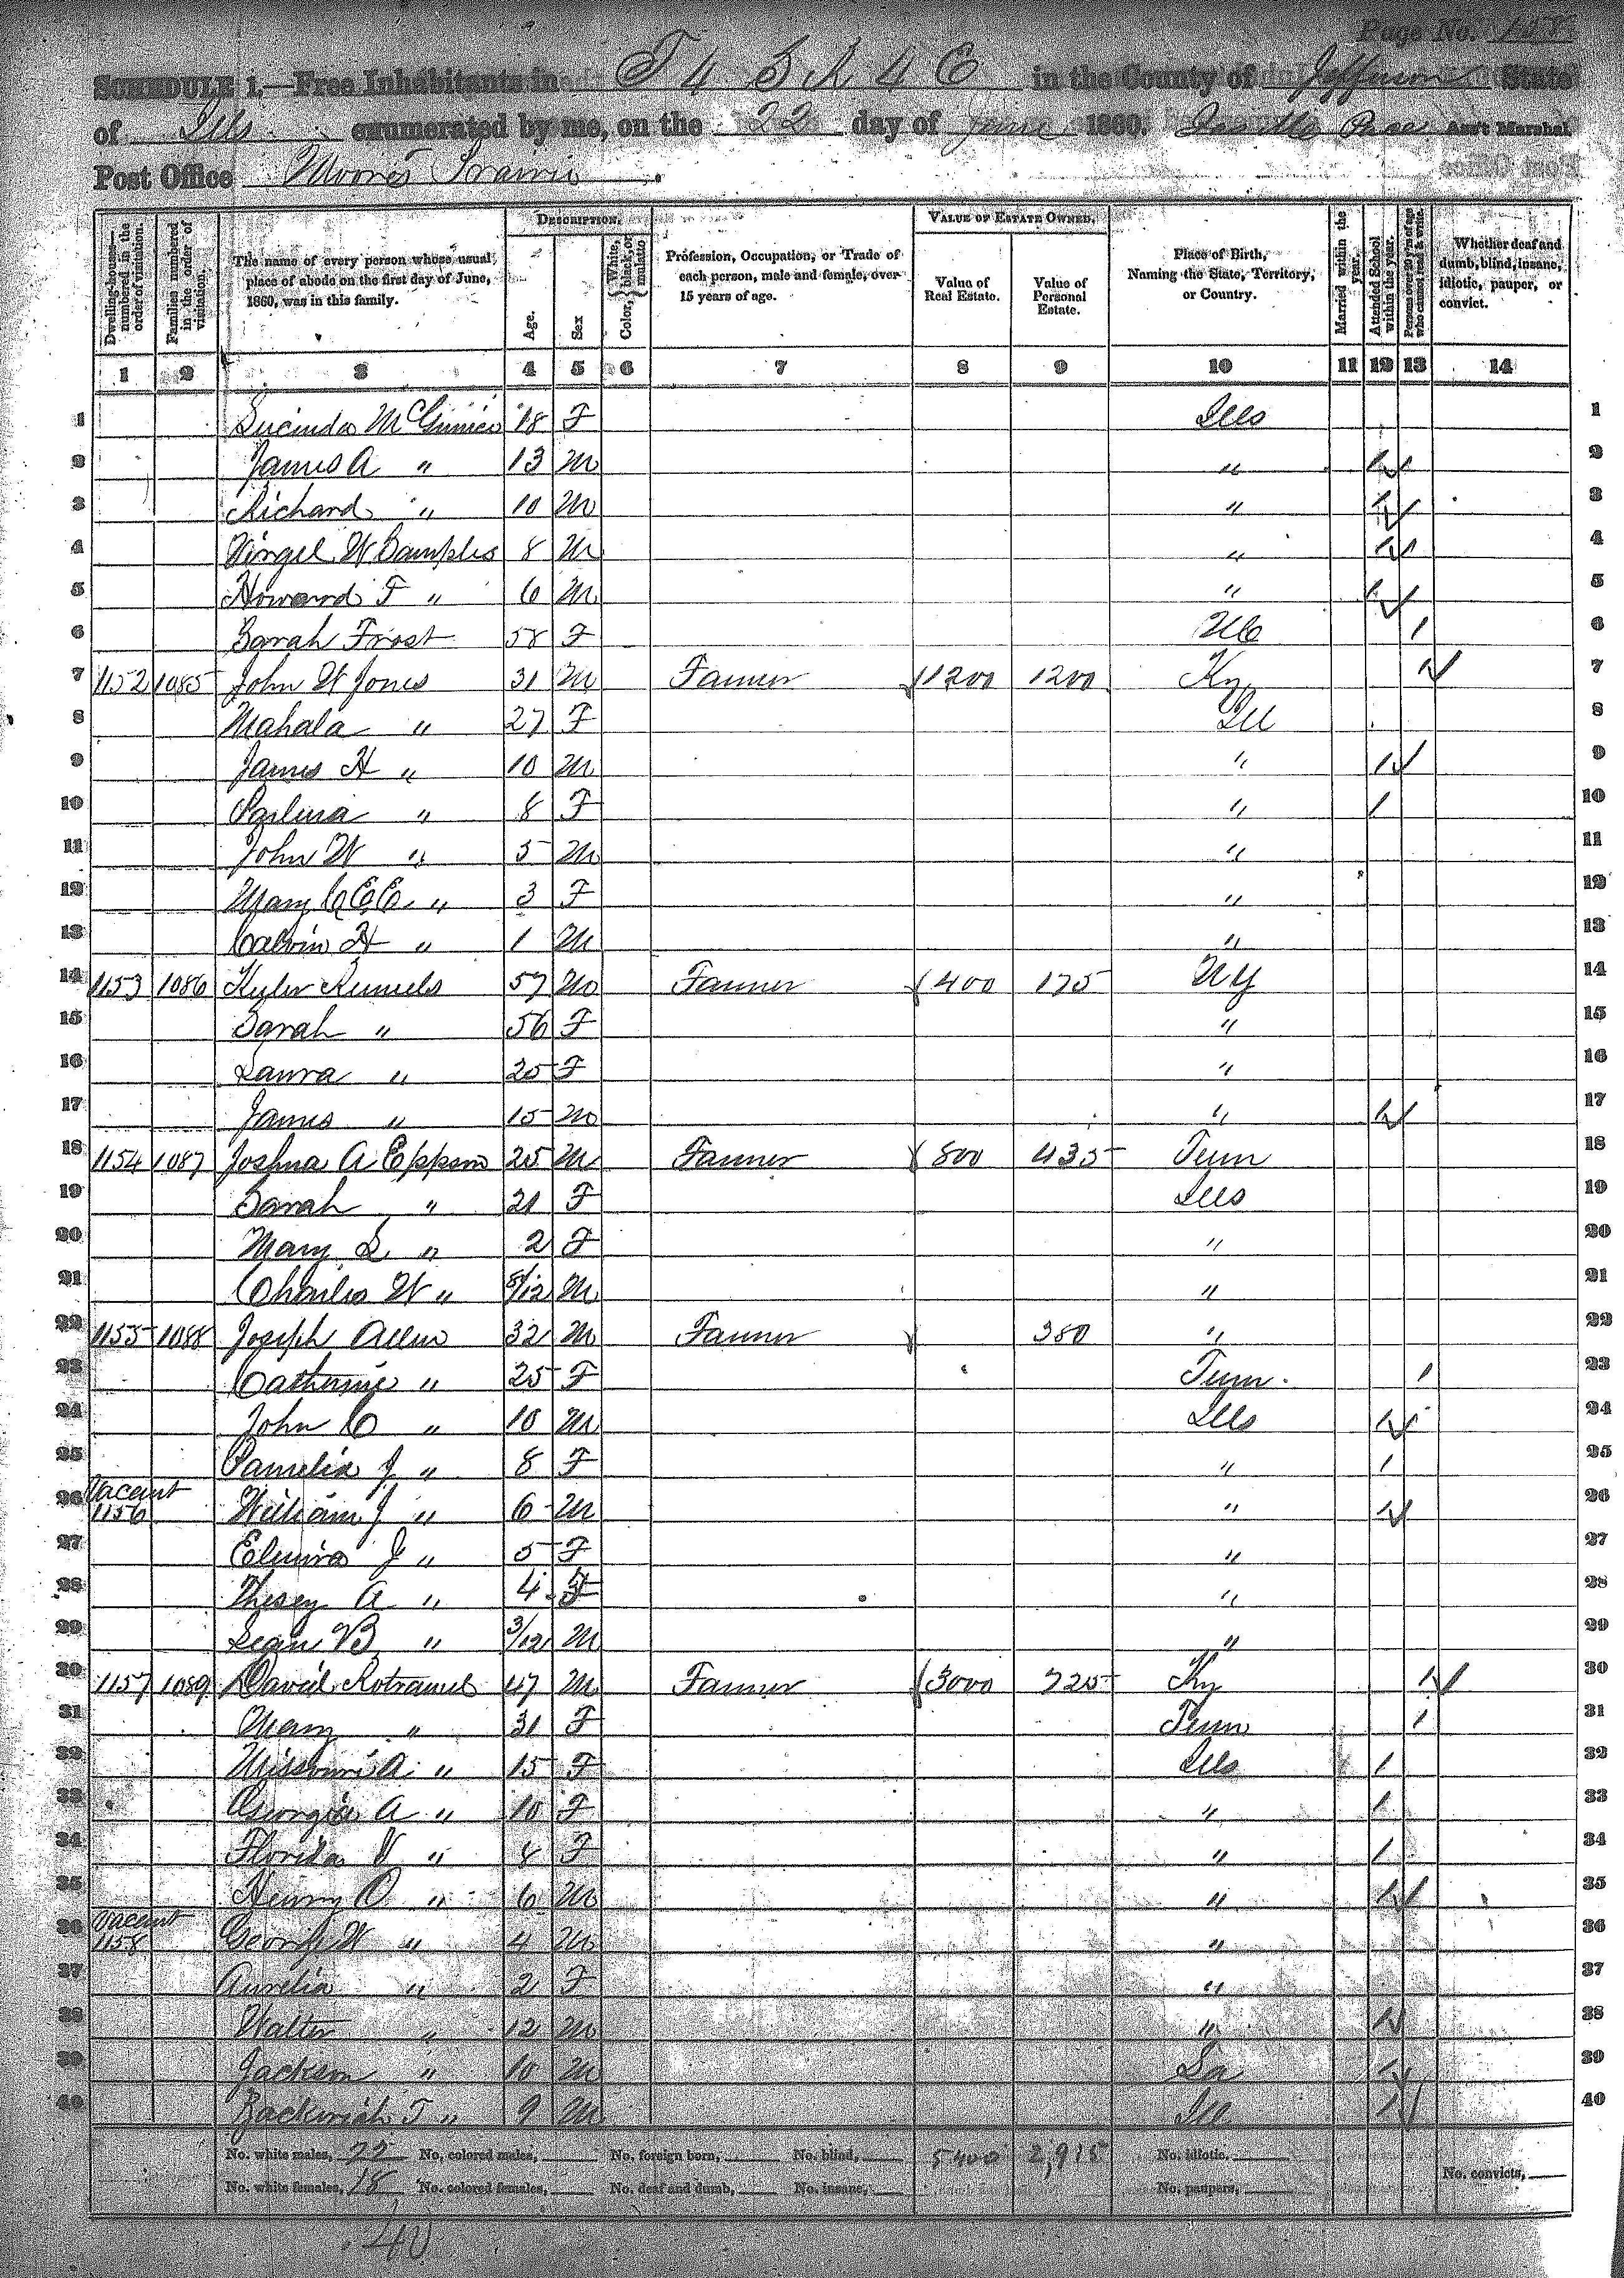 Page No. 158
SCHEDULE 1.—Free Inhabitants in T 4 S R 4 E in the County of Jefferson State
of Ills enumerated by me, on the 22 day of June 1860. Pace Ass't Marshal.
Post Office Moores Prairie.
Dwelling-houses—numbered in the order of visitation.
Families numbered in the order of visitation.
The name of every person whose usual place of abode on the first day of June, 1860, was in this family.
DESCRIPTION.
Age.
Sex
Color, {White, black, or mulatto
Profession, Occupation, or Trade of each person, male and female, over 15 years of age.
VALUE OF ESTATE OWNED.
Value of Real Estate.
Value of Personal Estate.
Place of Birth, Naming the State, Territory, or Country.
Married within the year.
Attended School within the year.
Persons over 20 y'rs of age who cannot read & write.
Whether deaf and dumb, blind, insane, idiotic, pauper, or convict.
1 2 3 4 5 6 7 8 9 10 11 12 13 14
1 Lucinda 18 F Ills 1
2 James A " 13 M " 1 2
3 Richard " 10 M " 1 3
4 Virgel W Samples 8 M " 1 4
5 Howard F " 6 M " 1 5
6 Sarah Frost 58 F 1 6
7 1152 1085 John W Jones 31 M Farmer 1200 1200 Ky 1 7
8 Mahala " 27 F Ill 8
9 James H " 10 M " 1 9
10 Parlina " 8 F " 1 10
11 John W " 5 M " 11
12 Mary C E E. " 3 F " 12
13 Calvin H " 1 M " 13
14 1153 1086 57 M Farmer 400 175 NY 14
15 Sarah " 56 F " 15
16 Laura " 25 F " 16
17 James " 15 M " 1 17
18 1154 1087 Joshua A Epperson 25 M Farmer 800 435 Tenn 18
19 Sarah " 21 F Ills 19
20 Mary L " 2 F " 20
21 Charles W " 8/12 M " 21
22 1155 1088 Joseph Allen 32 M Farmer 380 " 22
23 Catherine " 25 F Tenn. 1 23
24 John C " 10 M Ills 1 24
25 Pamelia J " 8 F " 1 25
26 Vacant 1156 William J " 6 M " 1 26
27 Elmira J " 5 F " 27
28 A " 4 F " 28
29 B " 3/12 M " 29
30 1157 1089 David Rotramel 47 M Farmer 3000 725 Ky 1 30
31 Mary " 31 F Tenn 1 31
32 Missouri A. " 15 F Ills 1 32
33 Georgia A " 10 F " 1 33
34 Florida V " 8 F " 1 34
35 Henry O " 6 M " 1 35
36 Vacant 1158 George W " 4 M " 36
37 Aurelia " 2 F " 37
38 Walter " 12 M " 1 38
39 Jackson " 10 M 1 39
40 T " 9 M Ill 1 40
No. white males, 22 No. colored males, No. foreign born, No. blind, 5400 2,915 No. idiotic,
No. white females, 18 No. colored females, No. deaf and dumb, No. insane, No. paupers, No. convicts,
40